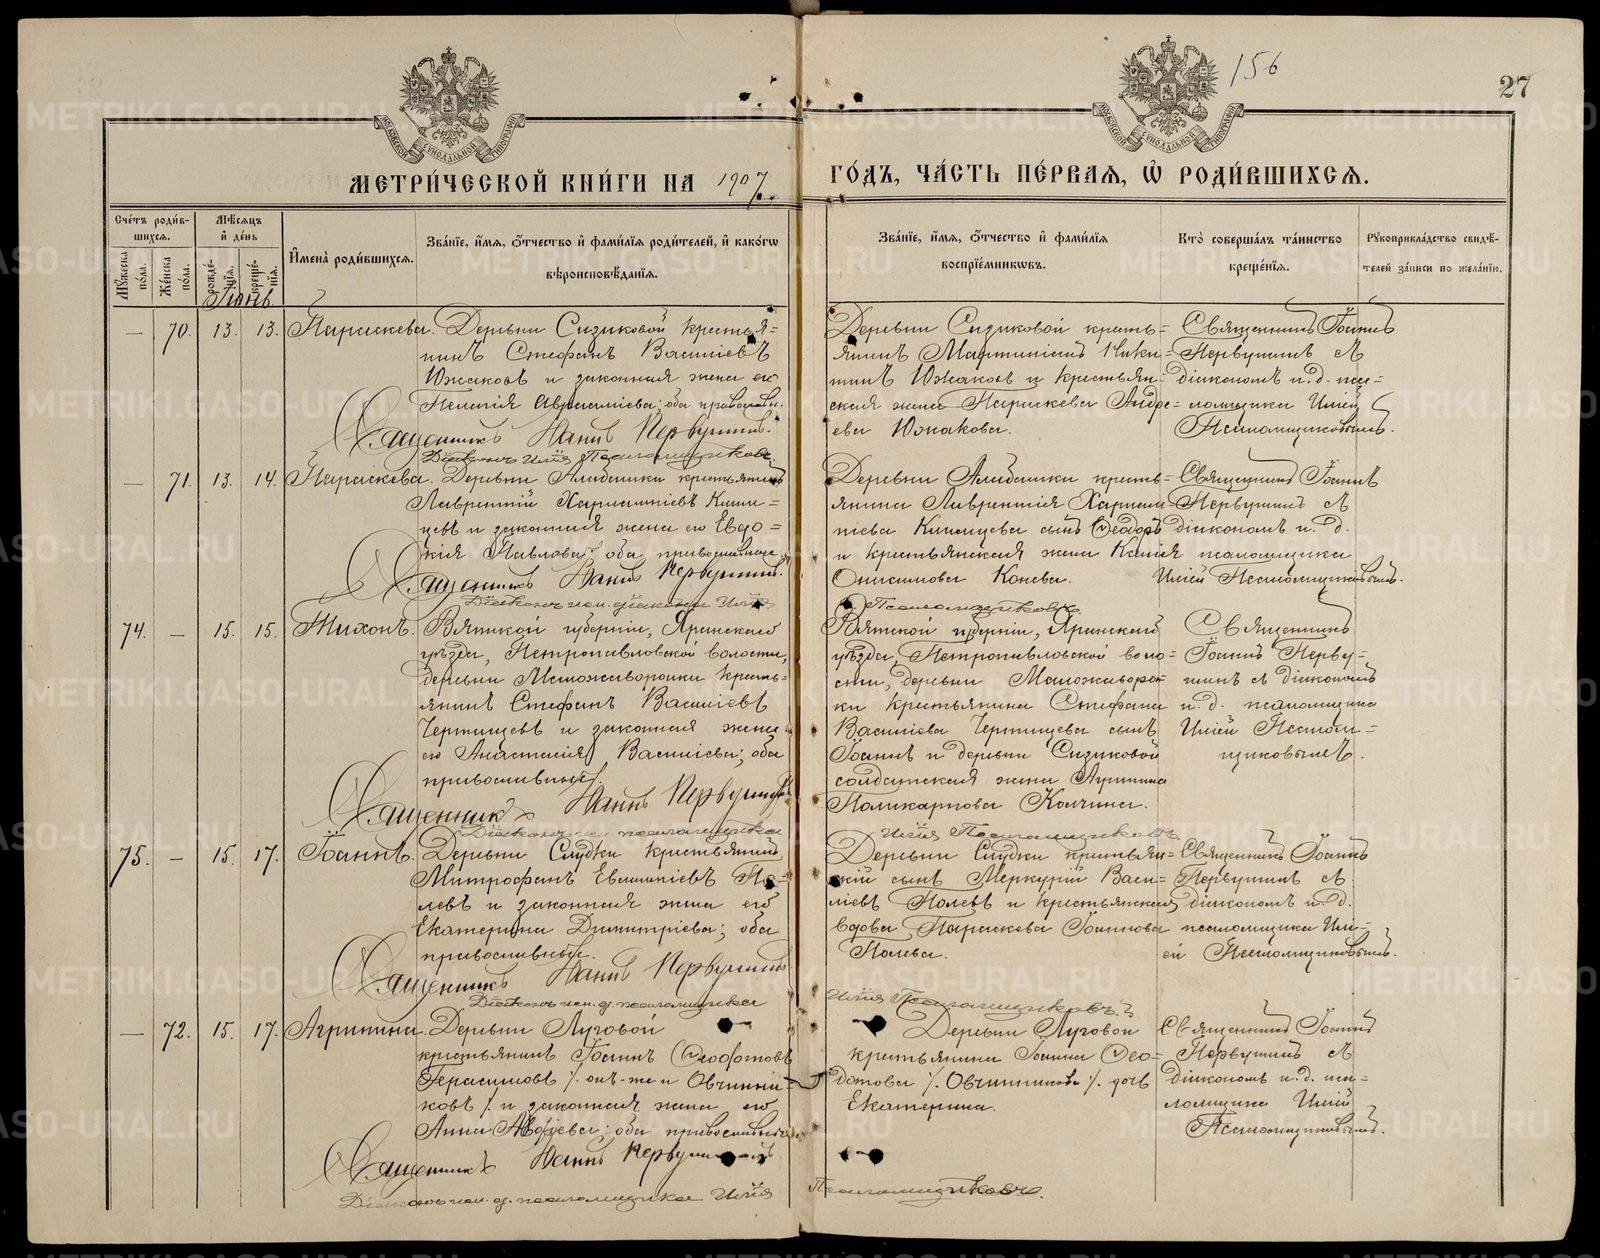 156
27
МЕТРИ́ЧЕСКОЙ КНИ́ГИ НА 1907
ГО́ДЪ, ЧА́СТЬ ПЕ́РВАѦ, Ѡ҆ РОДИ́ВШИХСѦ.
Сче́тъ роди́в-
шихсѧ.
Мꙋ́жеска по́ла.
Же́нска по́ла.
Мѣ́сѧцъ и҆ де́нь
рожде́-нїѧ.
креще́-нїѧ.
И҆мена̀ роди́вшихсѧ.
Зва́нїе, и҆́мѧ, ѻ҆́тчество и҆ фами́лїѧ роди́телей, и҆ како́гѡ
вѣроисповѣ́данїѧ.
Зва́нїе, и҆́мѧ, ѻ҆́тчество и҆ фами́лїѧ
воспрїе́мникѡвъ.
Кто̀ соверша́лъ та́инство
креще́нїѧ.
Рꙋкоприкла́дство свидѣ́-
телей за́писи по жела́нїю.
Іюнь
— 70. 13. 13. Параскева. Деревни Сизиковой крестья=
нинъ Стефанъ Васильевъ
Южаковъ и законная жена его
Пелагія Аврааміева; оба православн.
Священникъ Іоаннъ Первушинъ.
Діаконъ Илія Псаломщиковъ.
Деревни Сизиковой кресть=
янинъ Мартиніанъ Ники=
тинъ Южаковъ и крестьян=
ская жена Параскева Андре=
ева Южакова.
Священникъ Іоаннъ
Первушинъ съ
діакономъ и.д. пса=
ломщика Иліей
Псаломщиковымъ.
— 71. 13. 14. Параскева. Деревни крестьянинъ
Лаврентій Харлампіевъ
и законная жена его Евдо=
кія Павлова; оба православные
Священникъ Іоаннъ Первушинъ.
Діаконъ Илія
Псаломщиковъ.
Деревни кресть=
янина Лаврентія Харлам=
піева сынъ Ѳеодоръ
и крестьянская жена Ксенія
Онисимова Конева.
Священникъ Іоаннъ
Первушинъ съ
діакономъ и. д.
псаломщика
Иліей Псаломщиковымъ.
74. — 15. 15. Тихонъ. Вятской губерніи, Яранскаго
уѣзда, Петропавловской волости,
деревни Маложаворонки кресть=
янинъ Стефанъ Васильевъ
Чертищевъ и законная жена
его Анастасія Васильева; оба
православные.
Священникъ Іоаннъ Первушинъ
Діаконъ псаломщика
Илія Псаломщиковъ
Вятской губерніи, Яранскаго
уѣзда, Петропавловской воло=
сти, деревни Маложаворон=
ки крестьянина Стефана
Васильева Чертищева сынъ
Іоаннъ и деревни Сизиковой
солдатская жена Агрипина
Поликарпова Колчина.
Священникъ
Іоаннъ Перву=
шинъ съ діакономъ
и. д. псаломщика
Иліей Псалом=
щиковымъ.
75. — 15. 17. Іоаннъ. Деревни Слудки крестьянинъ
Митрофанъ Евлампіевъ По=
левъ и законная жена его
Екатерина Димитріева; оба
православные.
Священникъ Іоаннъ Первушинъ
Діаконъ исп. д. псаломщика
Илія Псаломщиковъ.
Деревни Слудки крестьян=
скій сынъ Меркурій Васи=
ліевъ Полевъ и крестьянская
вдова Параскева Іоаннова
Полева.
Священникъ Іоаннъ
Первушинъ съ
діакономъ и. д.
псаломщика Илі=
ей Псаломщиковымъ.
— 72. 15. 17. Агрипина. Деревни Луговой
крестьянинъ Іоаннъ Ѳеодотовъ
Герасимовъ /. онъ-же и Овчинни=
ковъ /. и законная жена его
Анна Авдіева; оба православные
Священникъ Іоаннъ Первушинъ
Діаконъ исп. д. псаломщика Илія
Псаломщиковъ.
Деревни Луговой
крестьянина Іоанна Ѳео=
дотова /. Овчинникова /. дочь
Екатерина.
Священникъ Іоаннъ
Первушинъ съ
діакономъ и.д. пса=
ломщика Иліей
Псаломщиковымъ.
METRIKI.GASO-URAL.RU